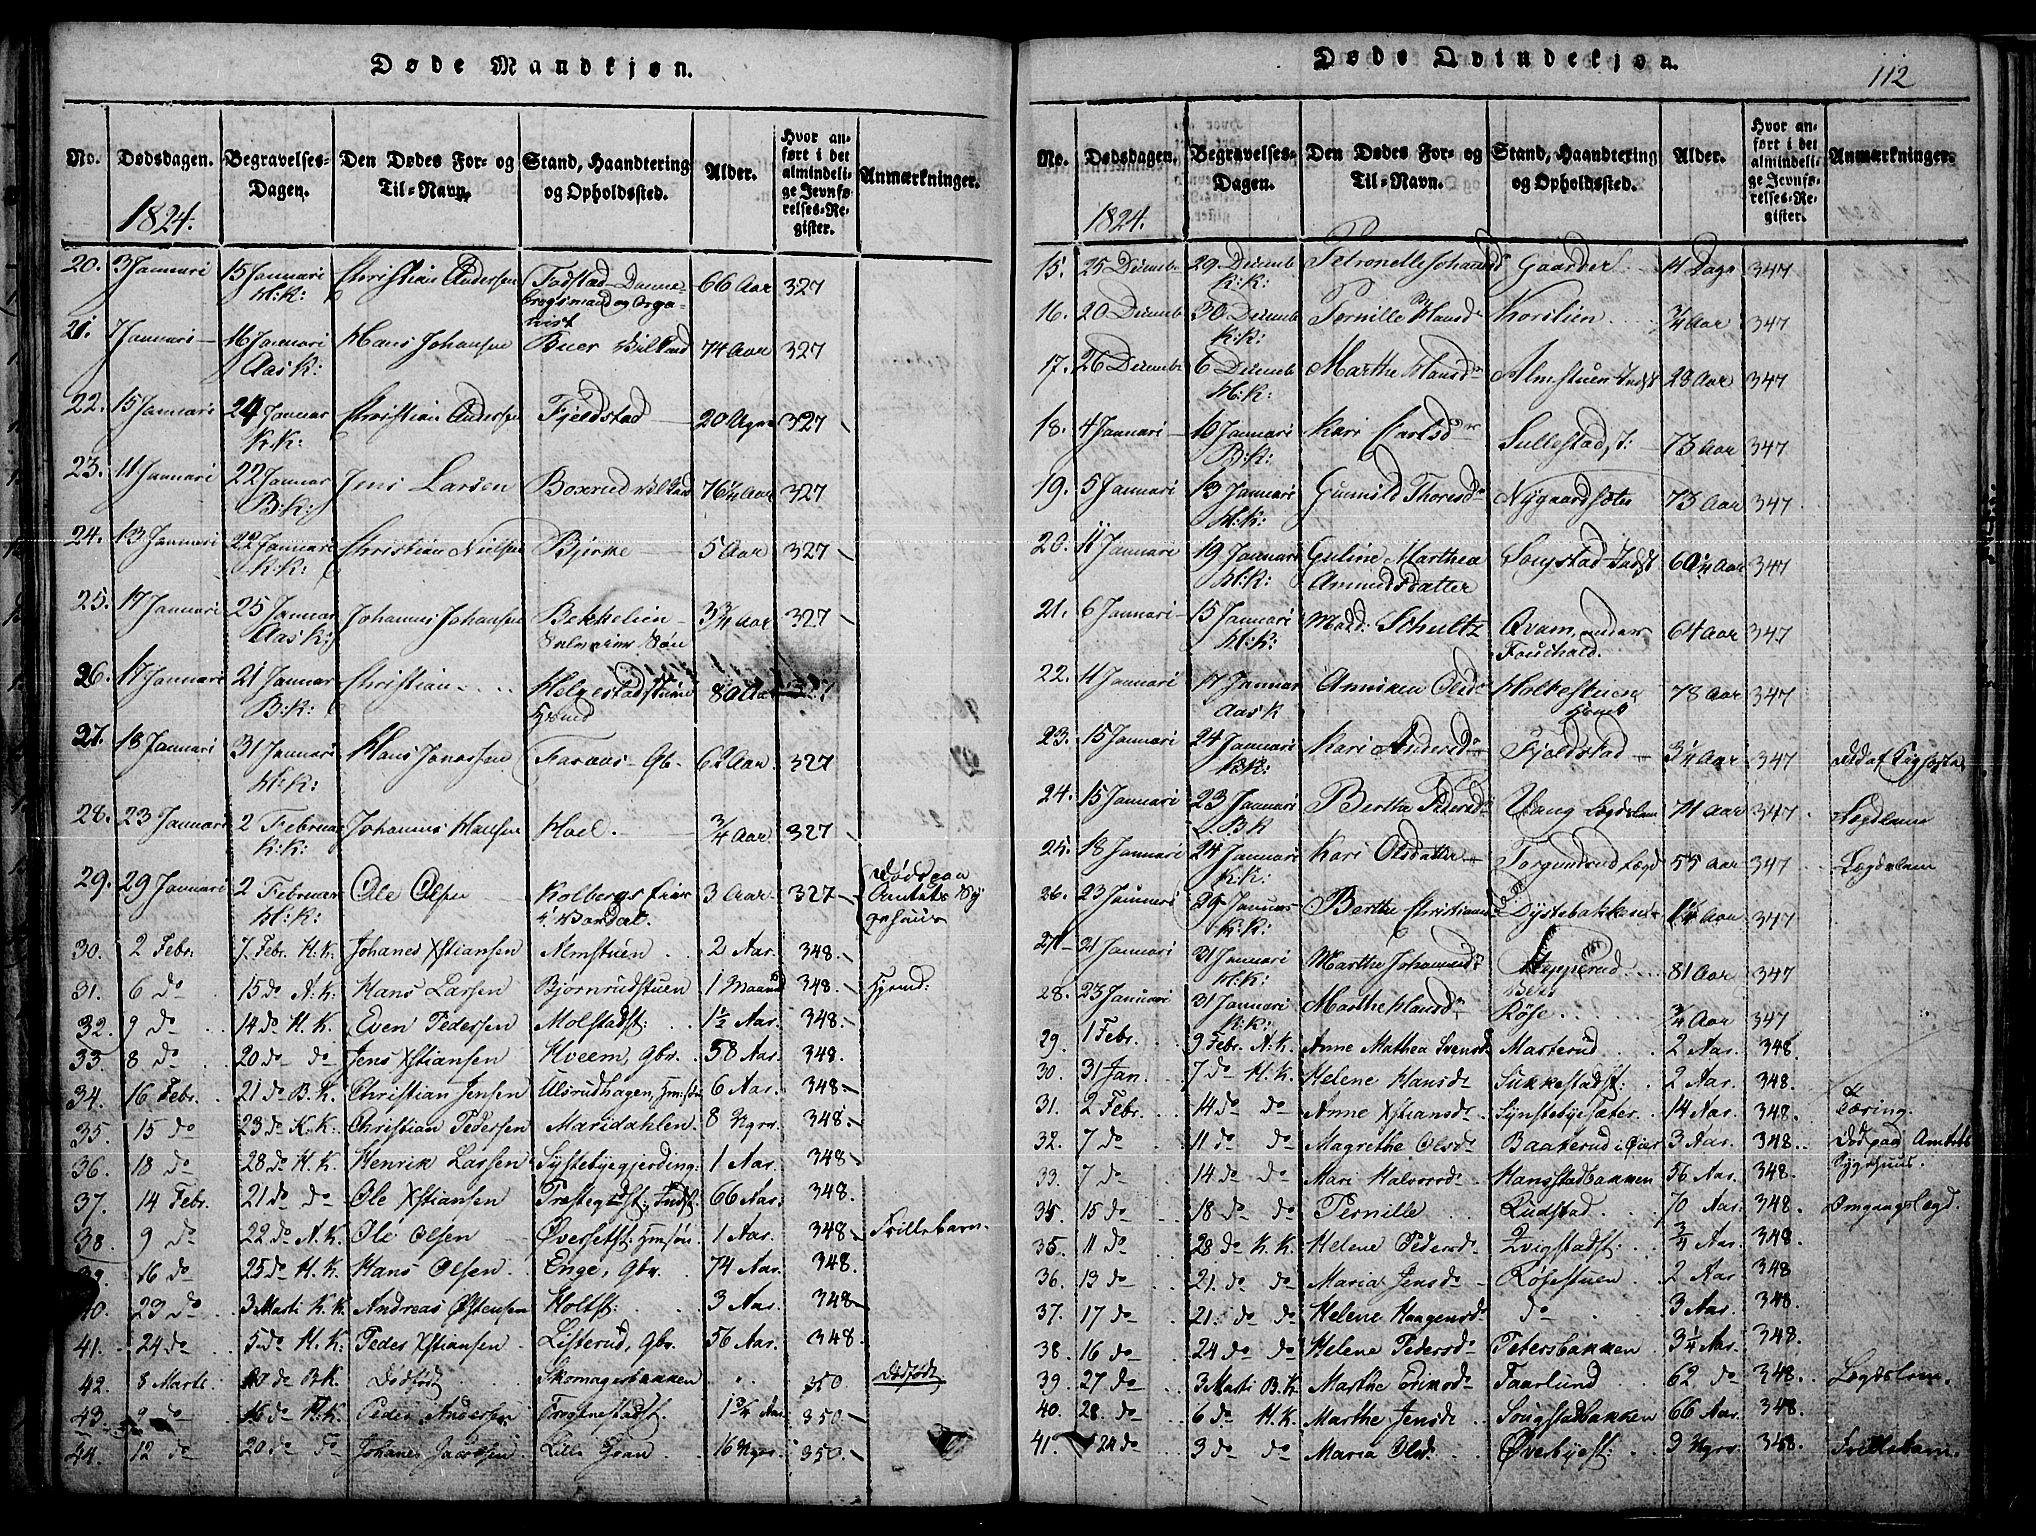 Døde Mandkjøn.
No. Dødsdagen. Begravelses-Dagen. Den Dødes For- og Til-Navn. Stand, Haandtering og Opholdssted. Alder. Hvor anført i det almindelige Jevnførelses-Register. Anmærkninger.
1824.
20. 3 Januari 15 Januari H:K: Christian Andersen Fodstad Danne-
brogsmand og Orga-
nist 66 Aar 327
21. 7 Januari 16 Januari Aas K: Hans Johansen Buer 74 Aar 327
22. 15 Januari 24 Januar K:K: Christian Andersen Fjeldstad 20 Uger 327
23. 11 Januari 22 Januar B:K: Jens Larsen Boxrud 76 1/4 Aar 327
24. 13 Januari 22 Januari K:K: Christian Nielsen Bjerke 5 Aar 327
25. 17 Januari 25 Januar Aas K: Johannes Johansen Bekkelien 3 3/4 Aar 327
26. 17 Januari 21 Januar B:K: Christian Helgestadstuen
Hsmd 80 Aar 327
27. 18 Januari 31 Januari H:K: Hans Jonassen Faraas Gb. 62 Aar 327
28. 23 Januari 2 Februar K:K: Johannes Hansen Hoel. 3/4 Aar 327
29. 29 Januari 2 Februar H:K: Ole Olsen Kolbergs Eier
i Bardal. 3 Aar 327 Død paa
Amtets Syg
gehuus
30. 2 Febr: 7. Febr. H.K. Johanes Xstiansen Almstuen 2 Aar. 348.
31. 6 do 15 do A:K: Hans Larsen Bjørnrudstuen 1 Maaned 348. Hsmd:
32. 9 do 14 do H.K. Even Pedersen Molstadst: 1 1/2 Aar. 348.
33. 8 do 20 do do Jens Xstiansen Kveem, gbr. 58 Aar. 348.
34. 16 Febr. 21 do B.K. Christian Jensen Ulsrudhagen, Hmsøn 6 Aar. 348.
35. 15 do 23 do K.K. Christian Pedersen Maridahlen 8 Ugr. 348.
36. 18 do 28 do H.K. Henrik Larsen Systebyegjerding: 1 Aar. 348.
37. 14 Febr. 21 do do Ole Xstiansen Præstegdst: Indst: 66 Aar. 348.
38. 9 do 22 do A.K. Ole Olsen Øversetst: Hmsøn 1 Aar. 348. Frillebarn.
39. 16 do 25 do H.K. Hans Olsen Enge, Gbr. 74 Aar. 348.
40. 23 do 3 Marti K.K. Andreas Østensen Holtst: 3 Aar. 348.
41. 24 do 5 do H.K. Peder Xstiansen Listerud, Gbr. 56 Aar. 348.
42. 8 Marti 10 do B.K. Dødfødt Skomagerbakken 350. Dødfødt
43. 9 do 16 do H.K. Peder Andersen Frognestadst. 1 3/4 Aar. 350.
44. 12 do 20 do do Johanes Jacobsen Lille Gran 16 Ugr. 350.
Døde Qvindekjøn.
112
No. Dødsdagen. Begravelses-Dagen. Den Dødes For- og Til-Navn. Stand, Haandtering og Opholdssted. Alder. Hvor anført i det almindelige Jevnførelses-Register. Anmærkninger.
1824.
15. 25 Decemb 29 Decemb K:K: Petronelle Johannesd Gaarder 14 Dage 347
16. 20 Decemb 30 Decemb K:K: Pernille Hansd Korslien 3/4 Aar 347
17. 26 Decemb 6 Decemb H:K: Marthe Hansdr Almstuen Indst 28 Aar 347
18. 4 Januari 10 Januari B:K: Kari Carlsdr Sullestad, 73 Aar 347
19. 5 Januari 13 Januari H:K: Gunild Thoresdr Nygaardsæter 73 Aar 347
20. 11 Januari 19 Januari H:K: Guline Marthea
Amundsdatter Songstad Indst 60 1/4 Aar 347
21. 6 Januari 15 Januari H:K Mad: Schultz Qvam, under
Fouchald. 64 Aar 347
22. 11 Januari 17 Januar Aas K Anniken Olsdr Holtestuen
Hsmd 78 Aar 347
23. 15 Januari 24 Januari K:K: Kari Andersdr Fjeldstad 3 1/4 Aar 347
24. 15 Januari 23 Januari B K Berthe Pedersdr Vang Legdslem 71 Aar 347 Legdslem
25. 18 Januari 24 Januari K:K: Kari Olsdatter Torgundrud Legd 55 Aar 347 Legdslem
26. 23 Januari 29 Januar K:K: Berthe Christiansdatter Dystebakken 1 1/4 Aar 347
27. 21 Januari 31 Januari H:K: Marthe Johannesdr Hepperud 81 Aar 347
28. 23 Januari 31 Januari K:K: Marthe Hansdr Røse 3/4 Aar 347
29. 1 Febr. 9 Febr. A.K. Anne Mathea Svensd Masterud 2 Aar. 348.
30. 31 Jan. 7 do H.K. Helene Hansdr Sukkestadst: 2 Aar. 348.
31. 2 Febr. 14 do do Anne Xstiansdr Synstebyesæter 14 Aar. 348. Tæring.
32. 7 do 11 do do Magrethe Olsdr Baakerud i Eier 3 Aar. 348. Død paa Amtets
Sygehuus.
33. 7 do 14 do do Mari Halvorsdr Hansstadbakken 56 Aar. 348.
35. 15 do 18 do do Pernille Rudstad. 70 Aar. 348. Omgangslegd.
35. 11 do 28 do K.K. Helene Pedersdr Qvigstadst: 3/4 Aar. 348.
36. 13 do 21. do do Maria Jensdr Røsestuen 2 Aar. 348
37. 17 do 21. do do Helene Haagensdr do 3 Aar. 348.
38. 16 do 24 do do Helene Pedersdr Petersbakken 3 1/4 Aar. 348.
39. 27 do 3 Marti B.K. Marthe Ericsdr Faarlund 62 do 348. Legdslem.
40. 28. do 6 do H.K. Marthe Jensdr Songstadbakken 66 Aar. 348.
41. 24 do 3 do do Maria Olsdr Øverbyest: 9 Ugr. 348. Frillebarn.